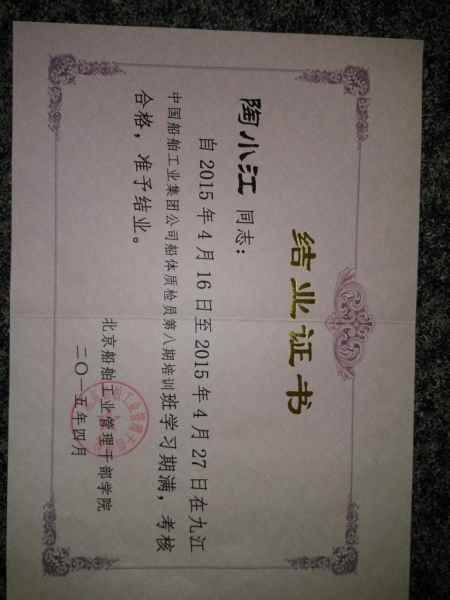 结业证书
陶小江 同志：
自2015年4月16日至2015年4月27日在九江
中国船舶工业集团公司船体质检员第八期培训班学习期满，考核
合格，准予结业。
北京船舶工业管理干部学院
二〇一五年四月